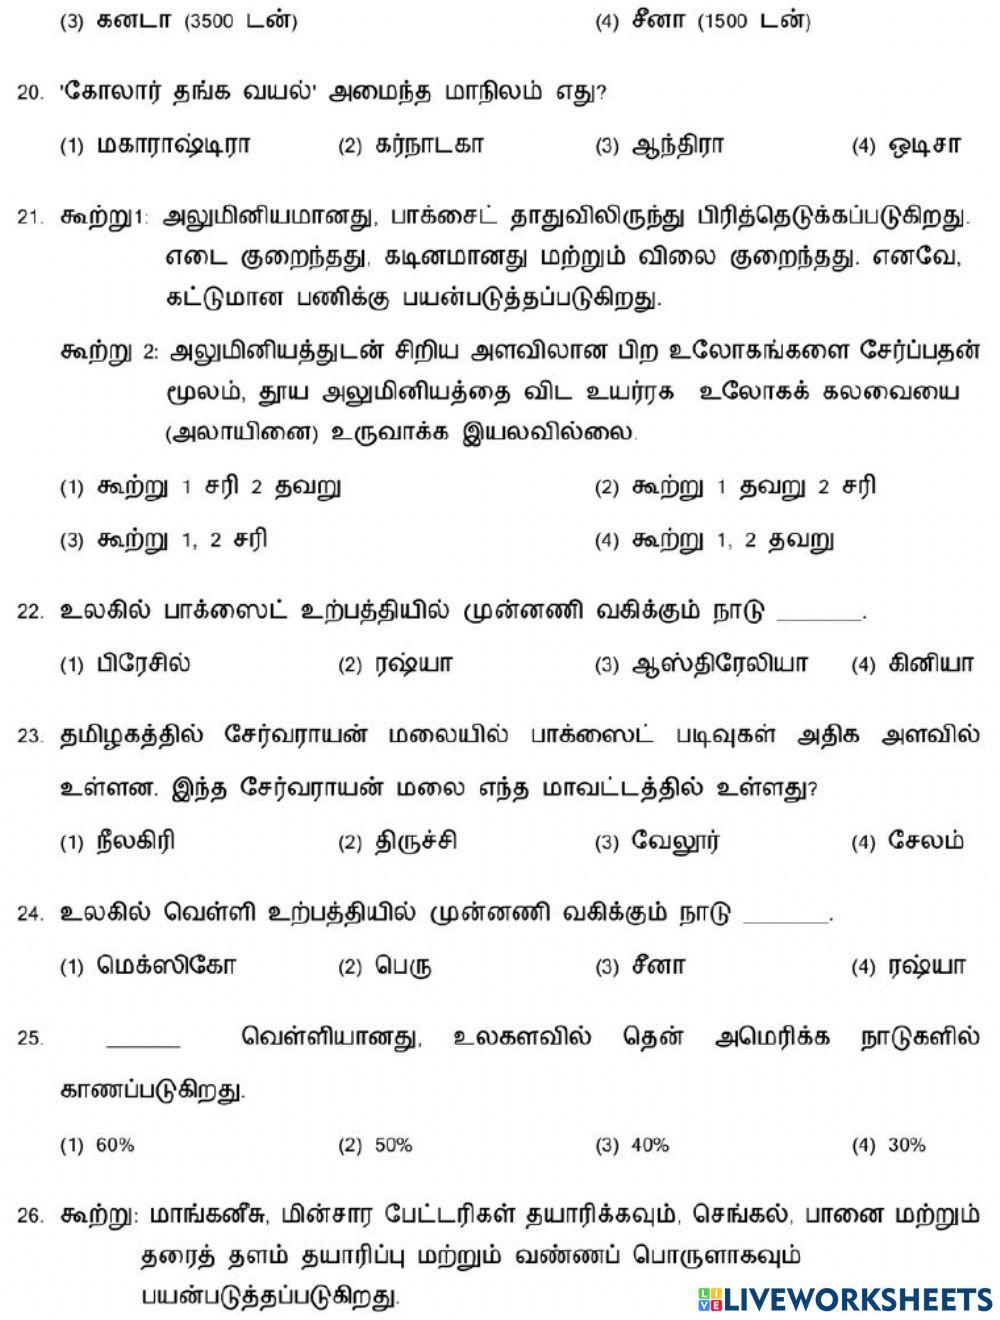 (3) கனடா (3500 டன்) (4) சீனா (1500 டன்)
20. 'கோலார் தங்க வயல்' அமைந்த மாநிலம் எது?
(1) மகாராஷ்டிரா (2) கர்நாடகா (3) ஆந்திரா (4) ஒடிசா
21. கூற்று1: அலுமினியமானது, பாக்சைட் தாதுவிலிருந்து பிரித்தெடுக்கப்படுகிறது.
எடை குறைந்தது, கடினமானது மற்றும் விலை குறைந்தது. எனவே,
கட்டுமான பணிக்கு பயன்படுத்தப்படுகிறது.
கூற்று 2: அலுமினியத்துடன் சிறிய அளவிலான பிற உலோகங்களை சேர்ப்பதன்
மூலம், தூய அலுமினியத்தை விட உயர்ரக உலோகக் கலவையை
(அலாயினை) உருவாக்க இயலவில்லை.
(1) கூற்று 1 சரி 2 தவறு (2) கூற்று 1 தவறு 2 சரி
(3) கூற்று 1, 2 சரி (4) கூற்று 1, 2 தவறு
22. உலகில் பாக்ஸைட் உற்பத்தியில் முன்னணி வகிக்கும் நாடு _______.
(1) பிரேசில் (2) ரஷ்யா (3) ஆஸ்திரேலியா (4) கினியா
23. தமிழகத்தில் சேர்வராயன் மலையில் பாக்ஸைட் படிவுகள் அதிக அளவில்
உள்ளன. இந்த சேர்வராயன் மலை எந்த மாவட்டத்தில் உள்ளது?
(1) நீலகிரி (2) திருச்சி (3) வேலூர் (4) சேலம்
24. உலகில் வெள்ளி உற்பத்தியில் முன்னணி வகிக்கும் நாடு _______.
(1) மெக்ஸிகோ (2) பெரு (3) சீனா (4) ரஷ்யா
25. ______ வெள்ளியானது, உலகளவில் தென் அமெரிக்க நாடுகளில்
காணப்படுகிறது.
(1) 60% (2) 50% (3) 40% (4) 30%
26. கூற்று: மாங்கனீசு, மின்சார பேட்டரிகள் தயாரிக்கவும், செங்கல், பானை மற்றும்
தரைத் தளம் தயாரிப்பு மற்றும் வண்ணப் பொருளாகவும்
பயன்படுத்தப்படுகிறது.
LIVE LIVEWORKSHEETS